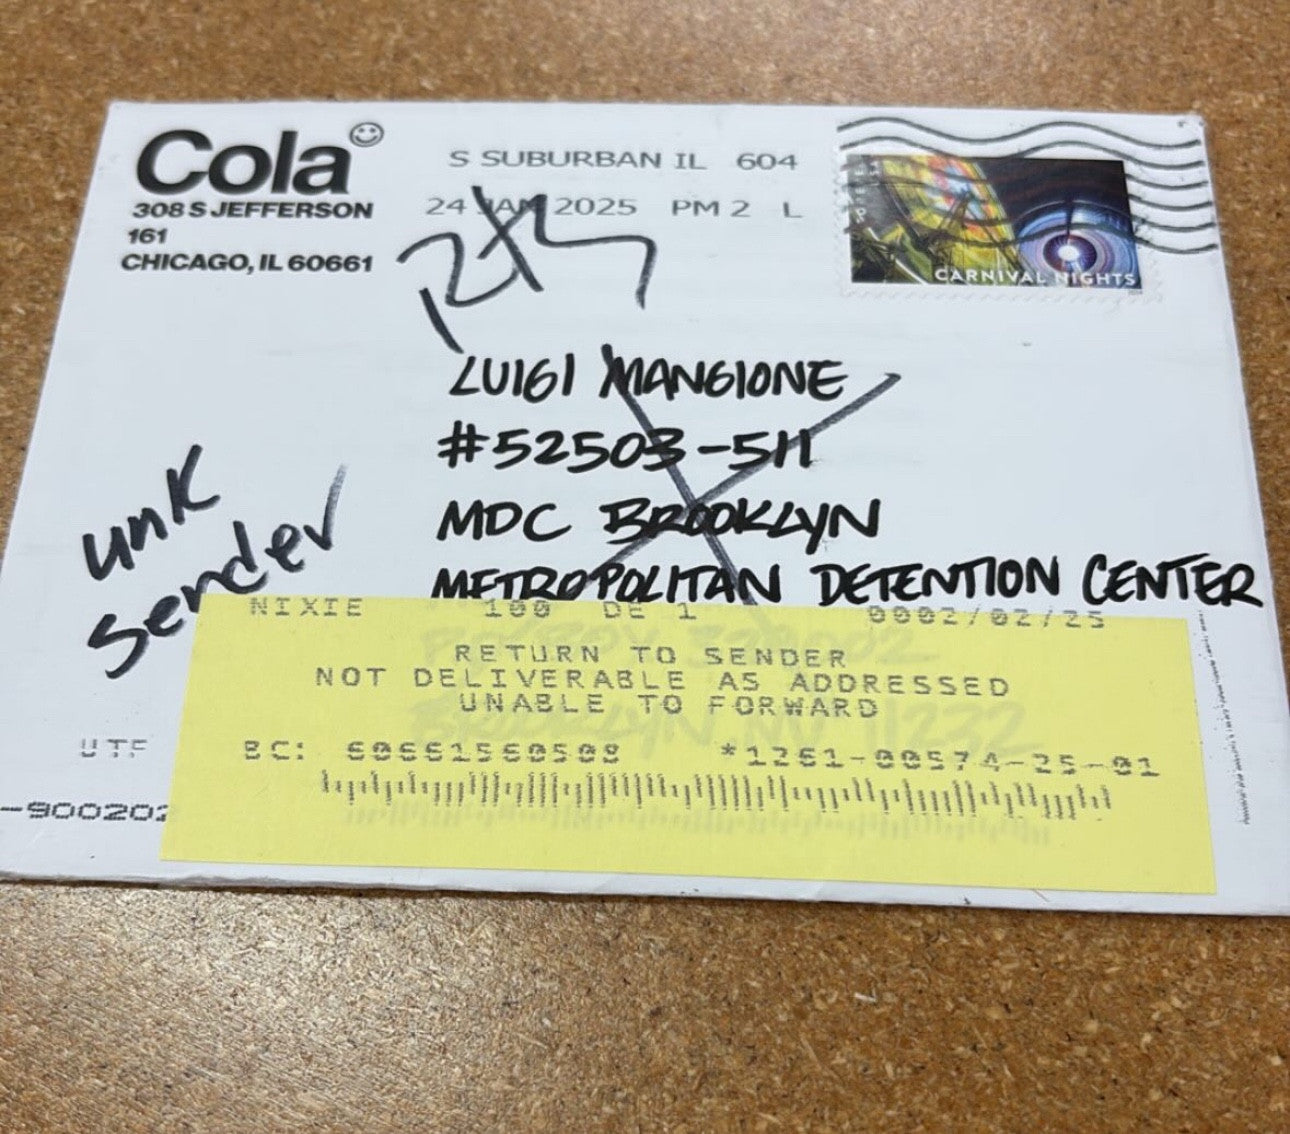 Cola
308 S JEFFERSON
161
CHICAGO, IL 60661
S SUBURBAN IL 604
24 JAN 2025 PM 2 L
CARNIVAL NIGHTS
RTS
LUIGI MANGIONE
#52503-511
MDC BROOKLYN
METROPOLITAN DETENTION CENTER
unk
sender
NIXIE 100 DE 1 0002/02/25
RETURN TO SENDER
NOT DELIVERABLE AS ADDRESSED
UNABLE TO FORWARD
BROOKLYN, NY 11232
UTF
BC: 60661560508 *1261-00574-25-01
-900202